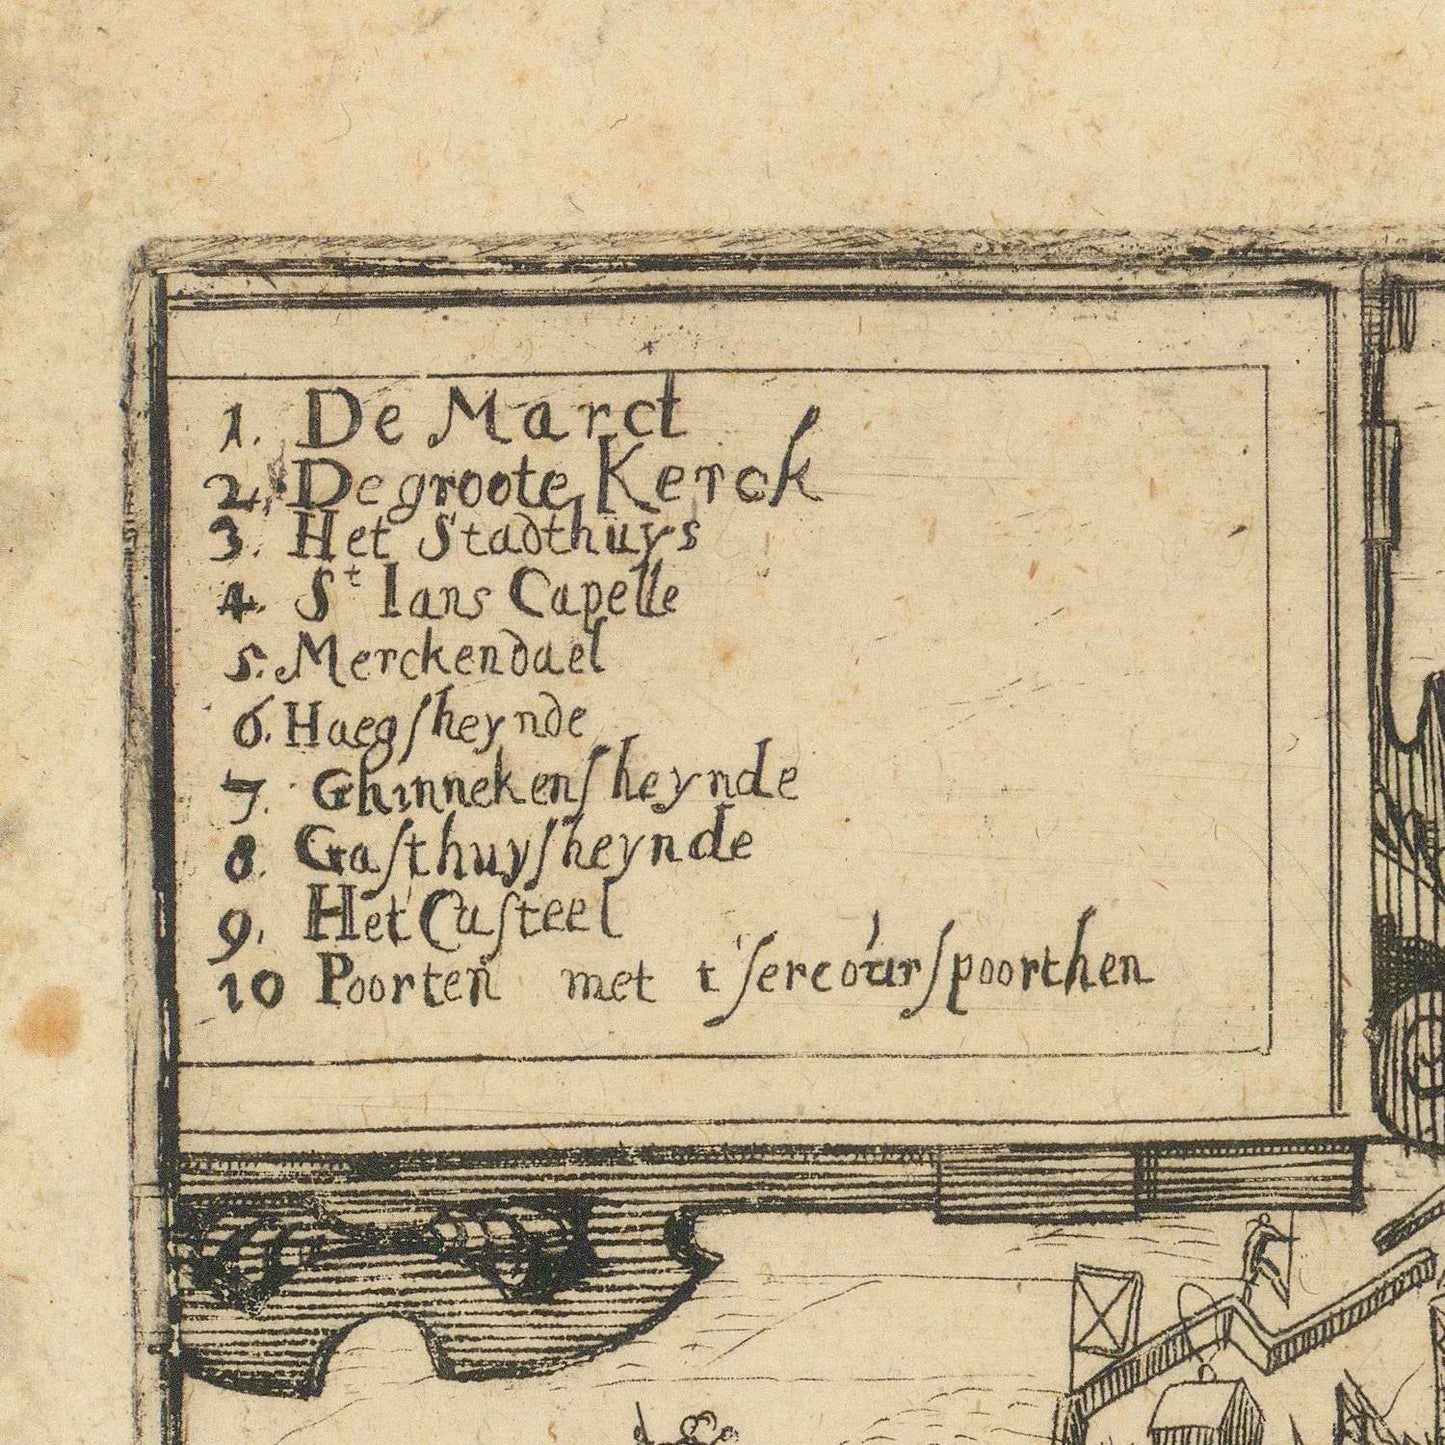 1. De Marct
2. De groote Kerck
3. Het Stadthuys
4. St Ians Capelle
5. Merckendael
6. Haegſheynde
7. Ghinnekenſheynde
8. Gaſthuyſheynde
9. Het Caſteel
10 Poorten met t'ſercourſpoorthen